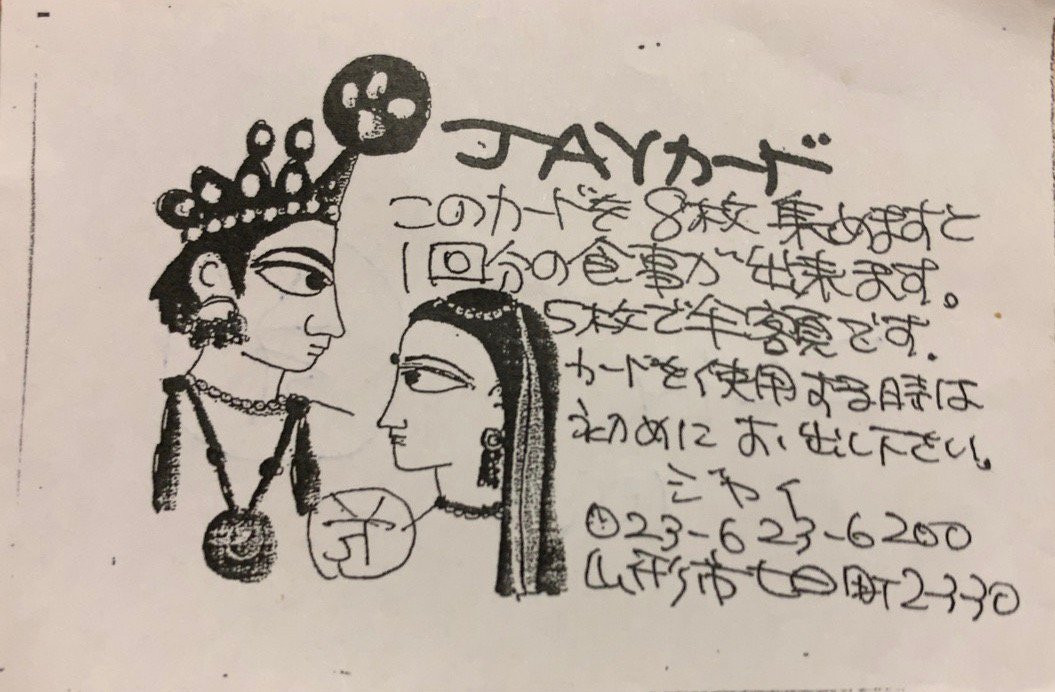 JAYカード
このカードを8枚集めますと
1回分の食事が出来ます。
5枚で半額です.
カードを使用する時は
初めにお出し下さい。
ジャイ
023-623-6200
山形市七日町2-3-30